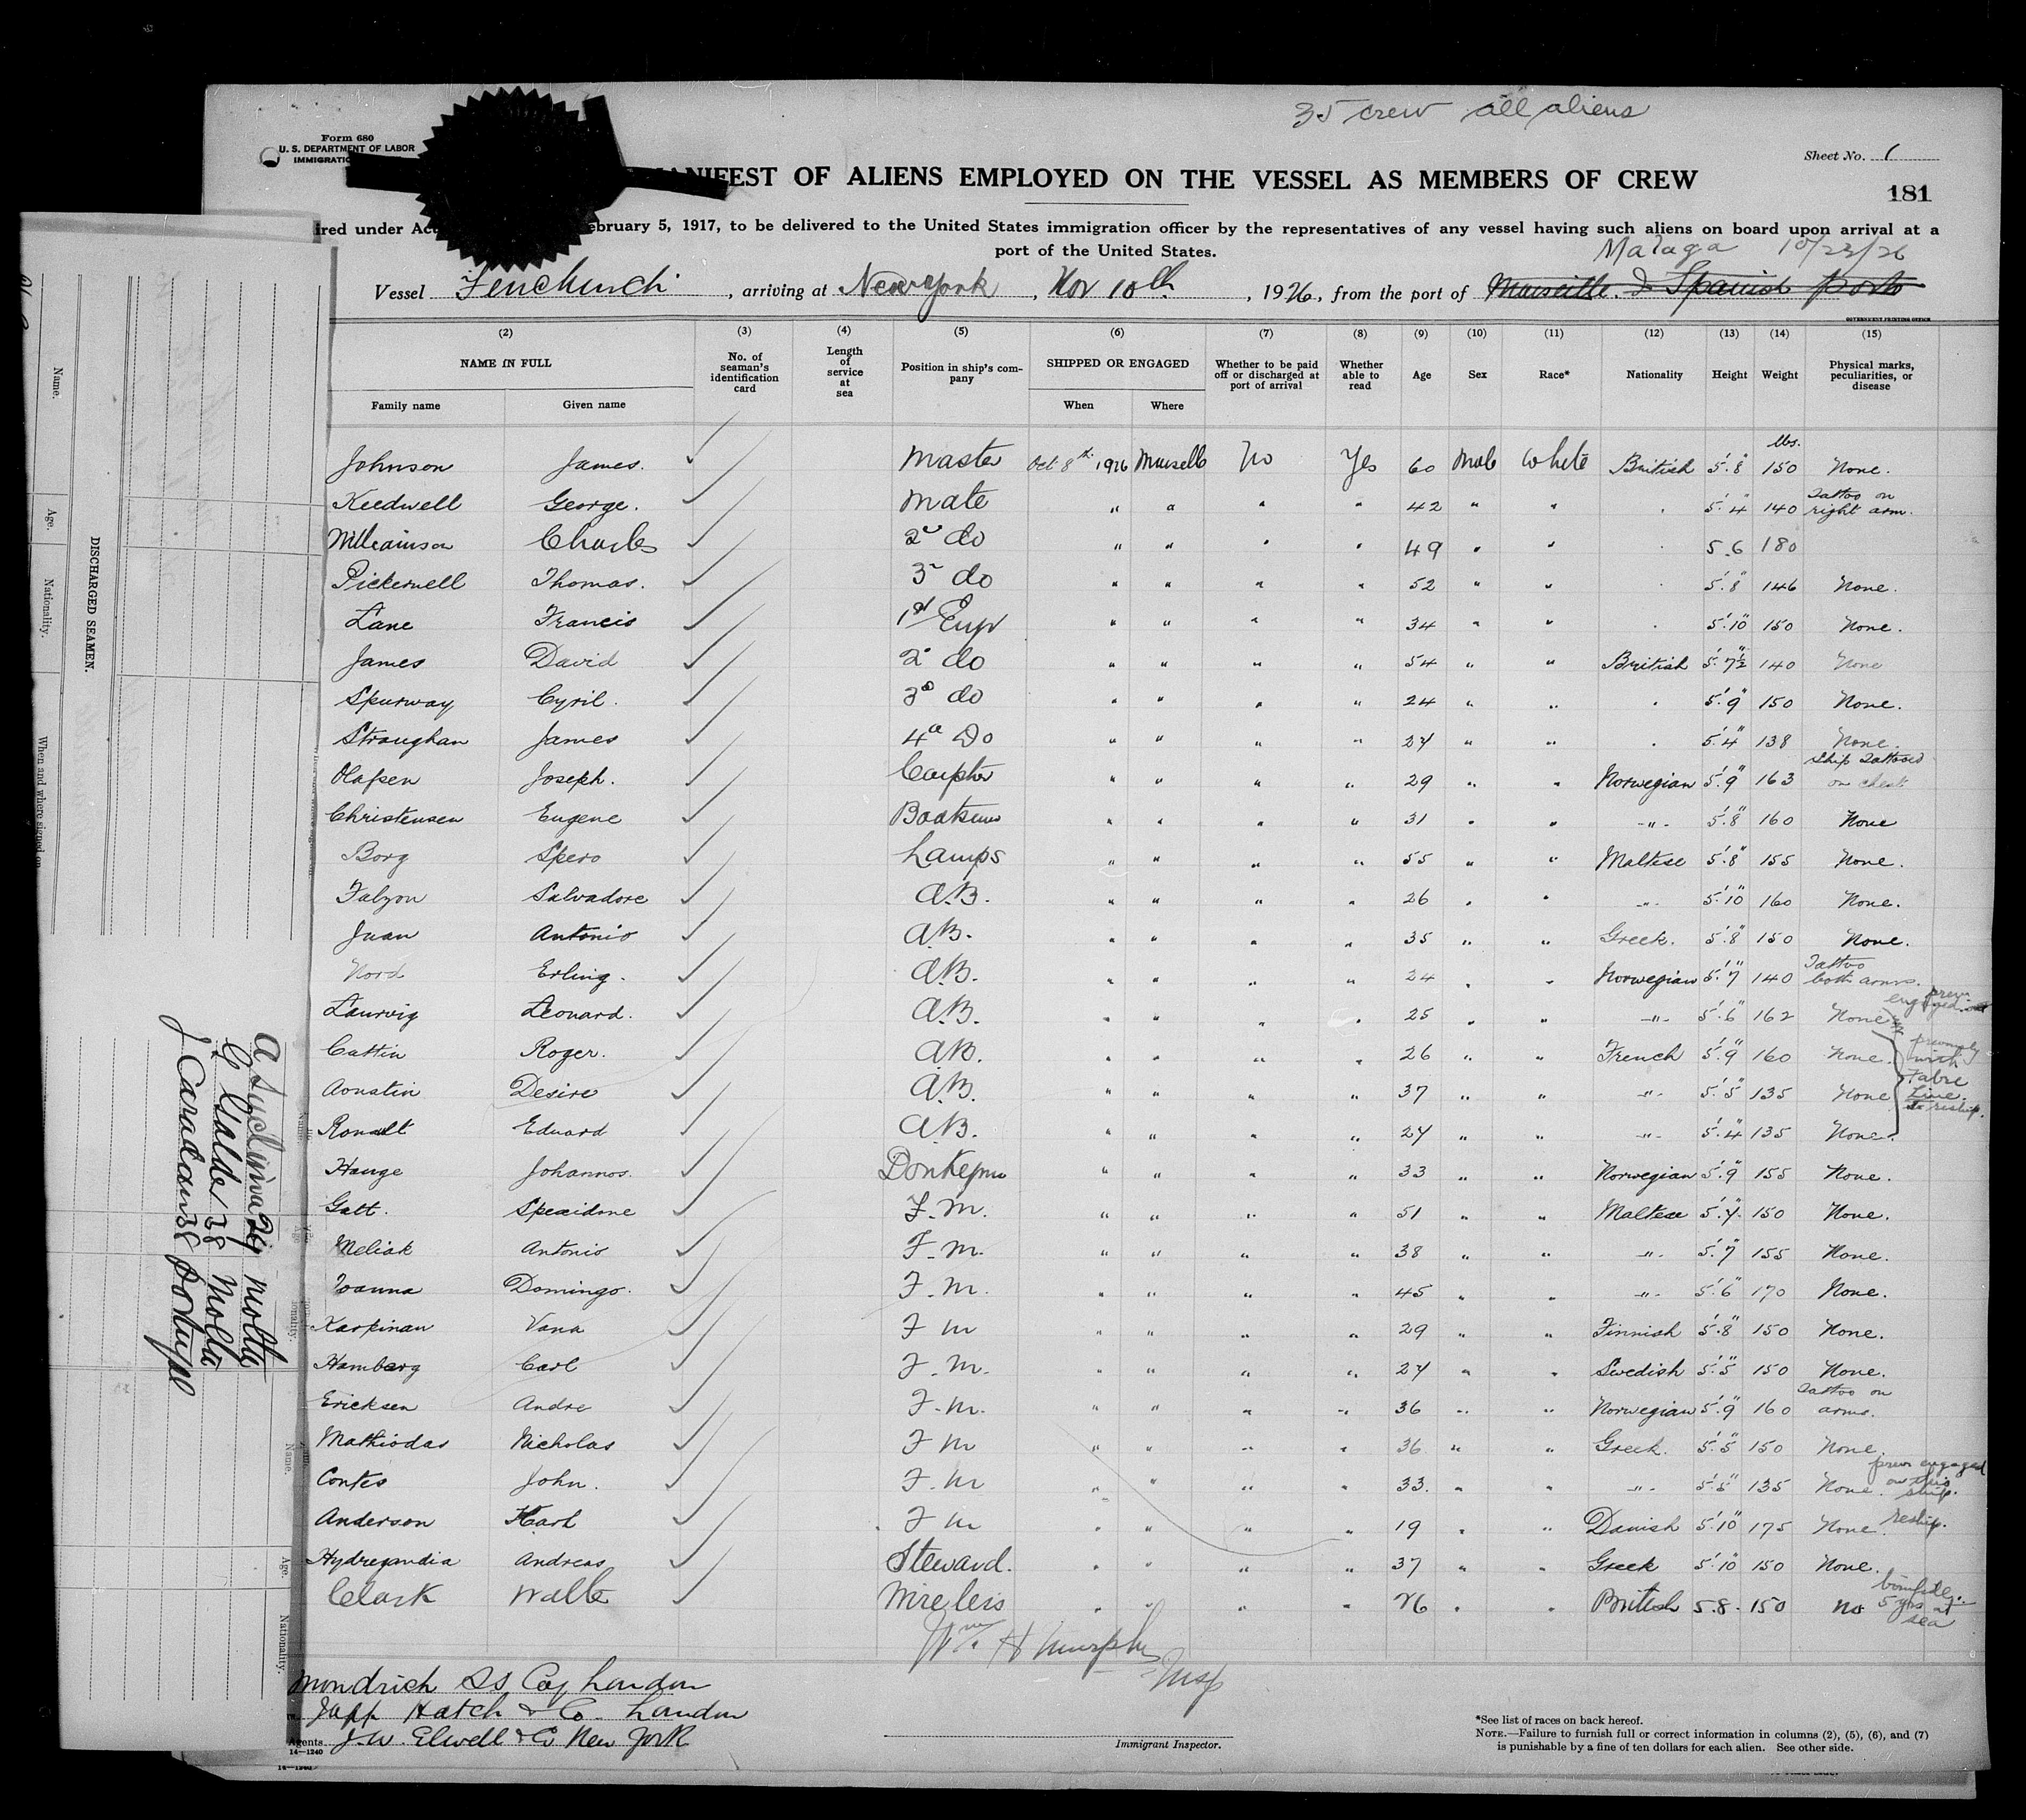 35 crew all aliens
Form 680
U. S. DEPARTMENT OF LABOR
IMMIGRATION
Sheet No. 1
MANIFEST OF ALIENS EMPLOYED ON THE VESSEL AS MEMBERS OF CREW
181
ired under Act ebruary 5, 1917, to be delivered to the United States immigration officer by the representatives of any vessel having such aliens on board upon arrival at a
port of the United States.
Malaga 10/23/26
Vessel Fenchurch, arriving at New York, Nov 10th, 1926, from the port of Marseille & Spanish Ports
GOVERNMENT PRINTING OFFICE
(2) (3) (4) (5) (6) (7) (8) (9) (10) (11) (12) (13) (14) (15)
NAME IN FULL No. of seaman's identification card Length of service at sea Position in ship's company SHIPPED OR ENGAGED Whether to be paid off or discharged at port of arrival Whether able to read Age Sex Race* Nationality Height Weight Physical marks, peculiarities, or disease
Family name Given name When Where
lbs.
Johnson James. Master Oct 8th 1926 Marseille No Yes 60 Male White British 5'.8" 150 None.
Keedwell George. Mate " " " " 42 " " " 5'.4" 140 Tattoo on right arm.
Williamson Charles 2d do " " " " 49 " " " 5.6 180
Pickernell Thomas. 3d do " " " " 52 " " " 5'.8" 146 None.
Lane Francis 1st Engr " " " " 34 " " " 5'.10" 150 None.
James David 2d do " " " " 54 " " British 5'.7½" 140 None
Spurway Cyril. 3d do " " " " 24 " " " 5'.9" 150 None.
Straughan James 4th Do " " " " 27 " " " 5'.4" 138 None.
Olafsen Joseph. Carpter " " " " 29 " " Norwegian 5'.9" 163 Ship Tattooed on chest
Christensen Eugene Boatswn " " " " 31 " " -"- 5'.8" 160 None
Borg Spero Lamps " " " " 55 " " Maltese 5'.8" 155 None.
Falzon Salvadore A.B. " " " " 26 " " -"- 5'.10" 160 None.
Juan Antonio A.B. " " " " 35 " " Greek. 5'.8" 150 None.
Nord Erling. A.B. " " " " 24 " " Norwegian 5'.7" 140 Tattoo both arms.
Laurvig Leonard. A.B. " " " " 25 " " -"- 5'.6" 162 None
Cattin Roger. A.B. " " " " 26 " " French 5'.9" 160 None. previously with
Aoustin Desire A.B. " " " " 37 " " -"- 5'.5" 135 None Fabre Line.
Ronalt Eduard A.B. " " " " 27 " " -"- 5'.4" 135 None. to reship.
Hauge Johannos. Donkeymn " " " " 33 " " Norwegian 5'.9" 155 None.
Gatt. Speridone F.M. " " " " 51 " " Maltese 5'.7" 150 None.
Meliak Antonio F.M. " " " " 38 " " -"- 5'.7" 155 None.
Ioanna Domingo. F.M. " " " " 45 " " -"- 5'.6" 170 None.
Karpinan Vana F M " " " " 29 " " Finnish 5'.8" 150 None.
Hamberg Carl F.M. " " " " 27 " " Swedish 5'.5" 150 None.
Ericksen Andre F.M. " " " " 36 " " Norwegian 5'.9" 160 Tattoo on arms.
Mathiodas Nicholas F M " " " " 36 " " Greek. 5'.5" 150 None.
Contes John. F.M " " " " 33. " " -"- 5'.5" 135 None. prev engaged on this ship.
Anderson Karl F M " " " " 19 " " Danish 5'.10" 175 None. reship.
Hydregandia Andreas Steward. " " " " 37 " " Greek 5'.10" 150 None.
Clark Walte Wireless " " " " 26 " " British 5.8. 150 No bonafide 5 yrs at sea
Wm. H Murphy Insp
Mondrich SS Coy London
Japp Hatch & Co. London
Agents J.W. Elwell & Co New York
14—1240
Immigrant Inspector.
*See list of races on back hereof.
NOTE.—Failure to furnish full or correct information in columns (2), (5), (6), and (7)
is punishable by a fine of ten dollars for each alien. See other side.
DISCHARGED SEAMEN.
Name.
Age.
Nationality.
When and where signed on
Name.
Age.
Nationality.